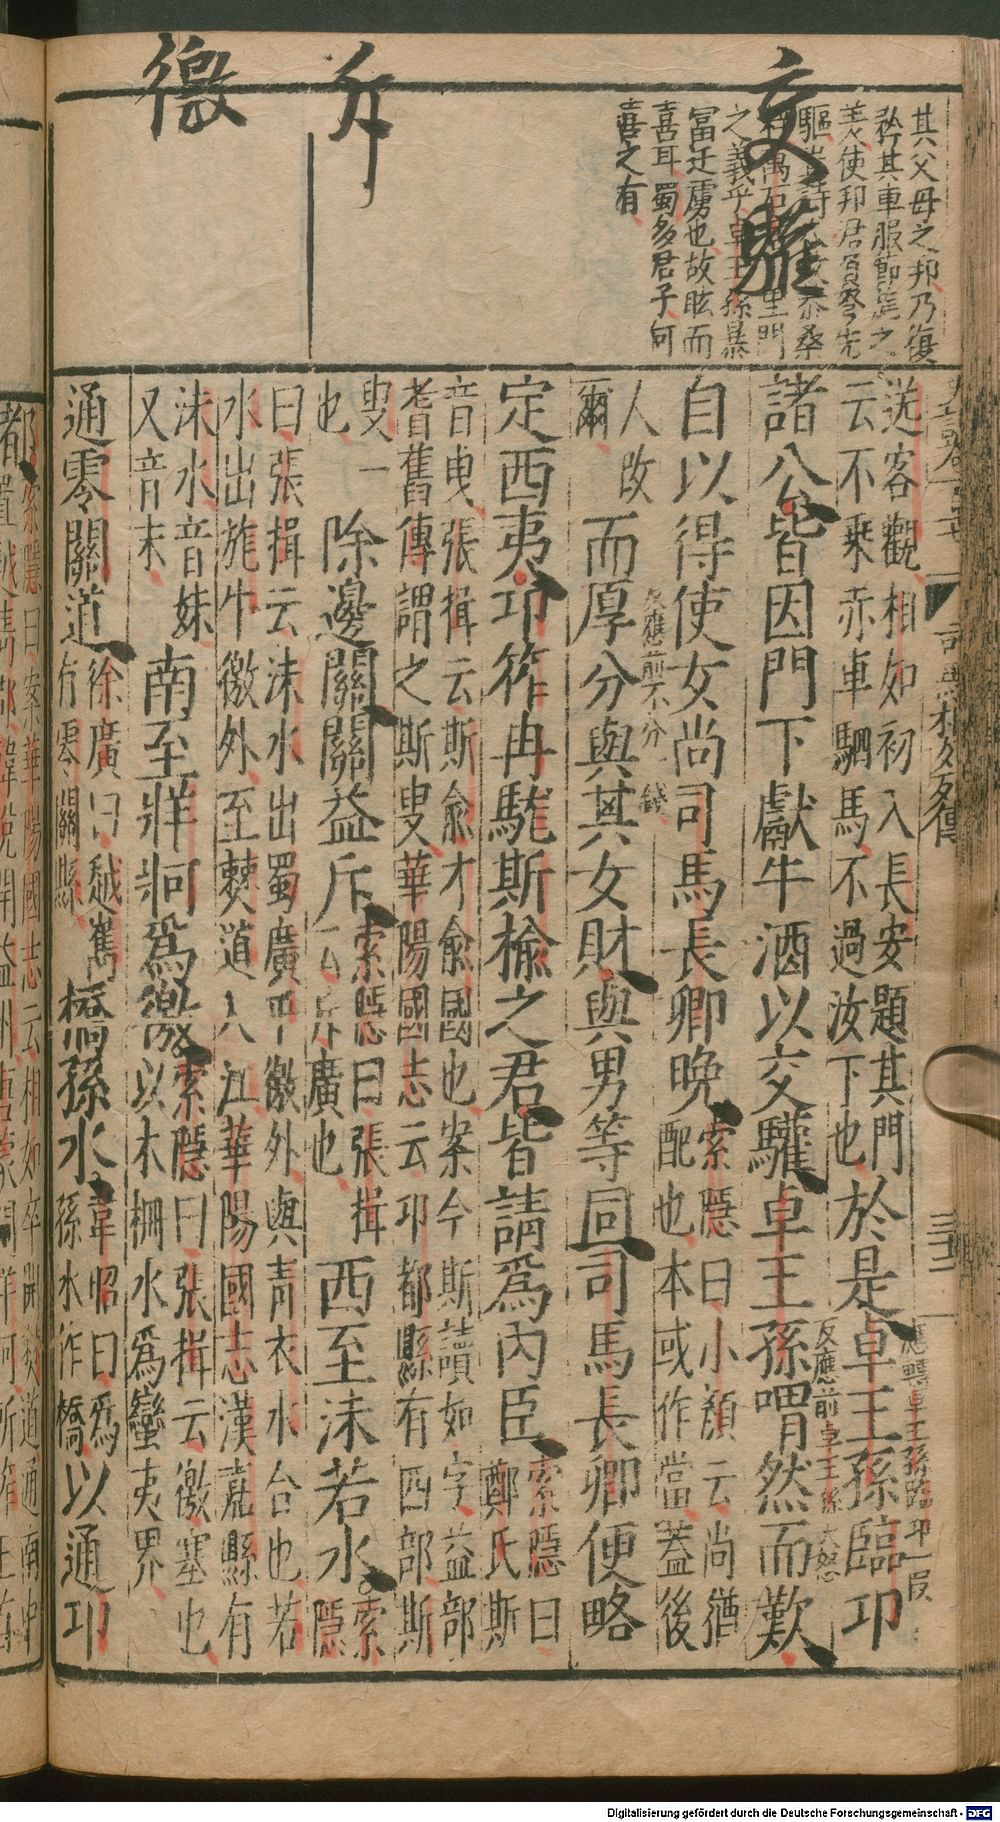 交驩
斥
徼
其父母之邦乃復
矜其車服節旄之
義使邦君負弩先
驅豈詩人致恭桑
梓萬石君下里門
之義乎卓王孫暴
富迁虜也故眩而
喜耳蜀多君子何
喜之有
送客觀相如初入長安題其門
云不乗赤車駟馬不過汝下也
於是卓王孫臨卭
應轉卓王孫臨卭一段
反應前卓王孫大怒
諸公皆因門下獻牛酒以交驩卓王孫喟然而歎
自以得使女尚司馬長卿晩
索隱曰小顔云尚猶
配也本或作當蓋後
人改
爾
反應前不分一錢
而厚分與其女財與男等同司馬長卿便略
定西夷卭筰冉駹斯榆之君皆請爲内臣
索隱曰
鄭氏斯
音曳張揖云斯俞才俞國也案今斯讀如字益部
耆舊傳謂之斯叟華陽國志云卭都縣有四部斯
叟一
也
除邊關關益斥
索隱曰張揖
云斥廣也
西至沬若水
索
隱
曰張揖云沬水出蜀廣平徼外與青衣水合也若
水出旄牛徼外至僰道入江華陽國志漢嘉縣有
沬水音妹
又音末
南至牂牁爲徼
索隱曰張揖云徼塞也
以木柵水爲蠻夷界
通零關道
徐廣曰越嶲
有零關縣
橋孫水
韋昭曰爲
孫水作橋
以通卭
都
索隱曰案華陽國志云相如卒開僰道通南中
置越嶲郡韓說開益州唐蒙開牂牁
Digitalisierung gefördert durch die Deutsche Forschungsgemeinschaft - DFG